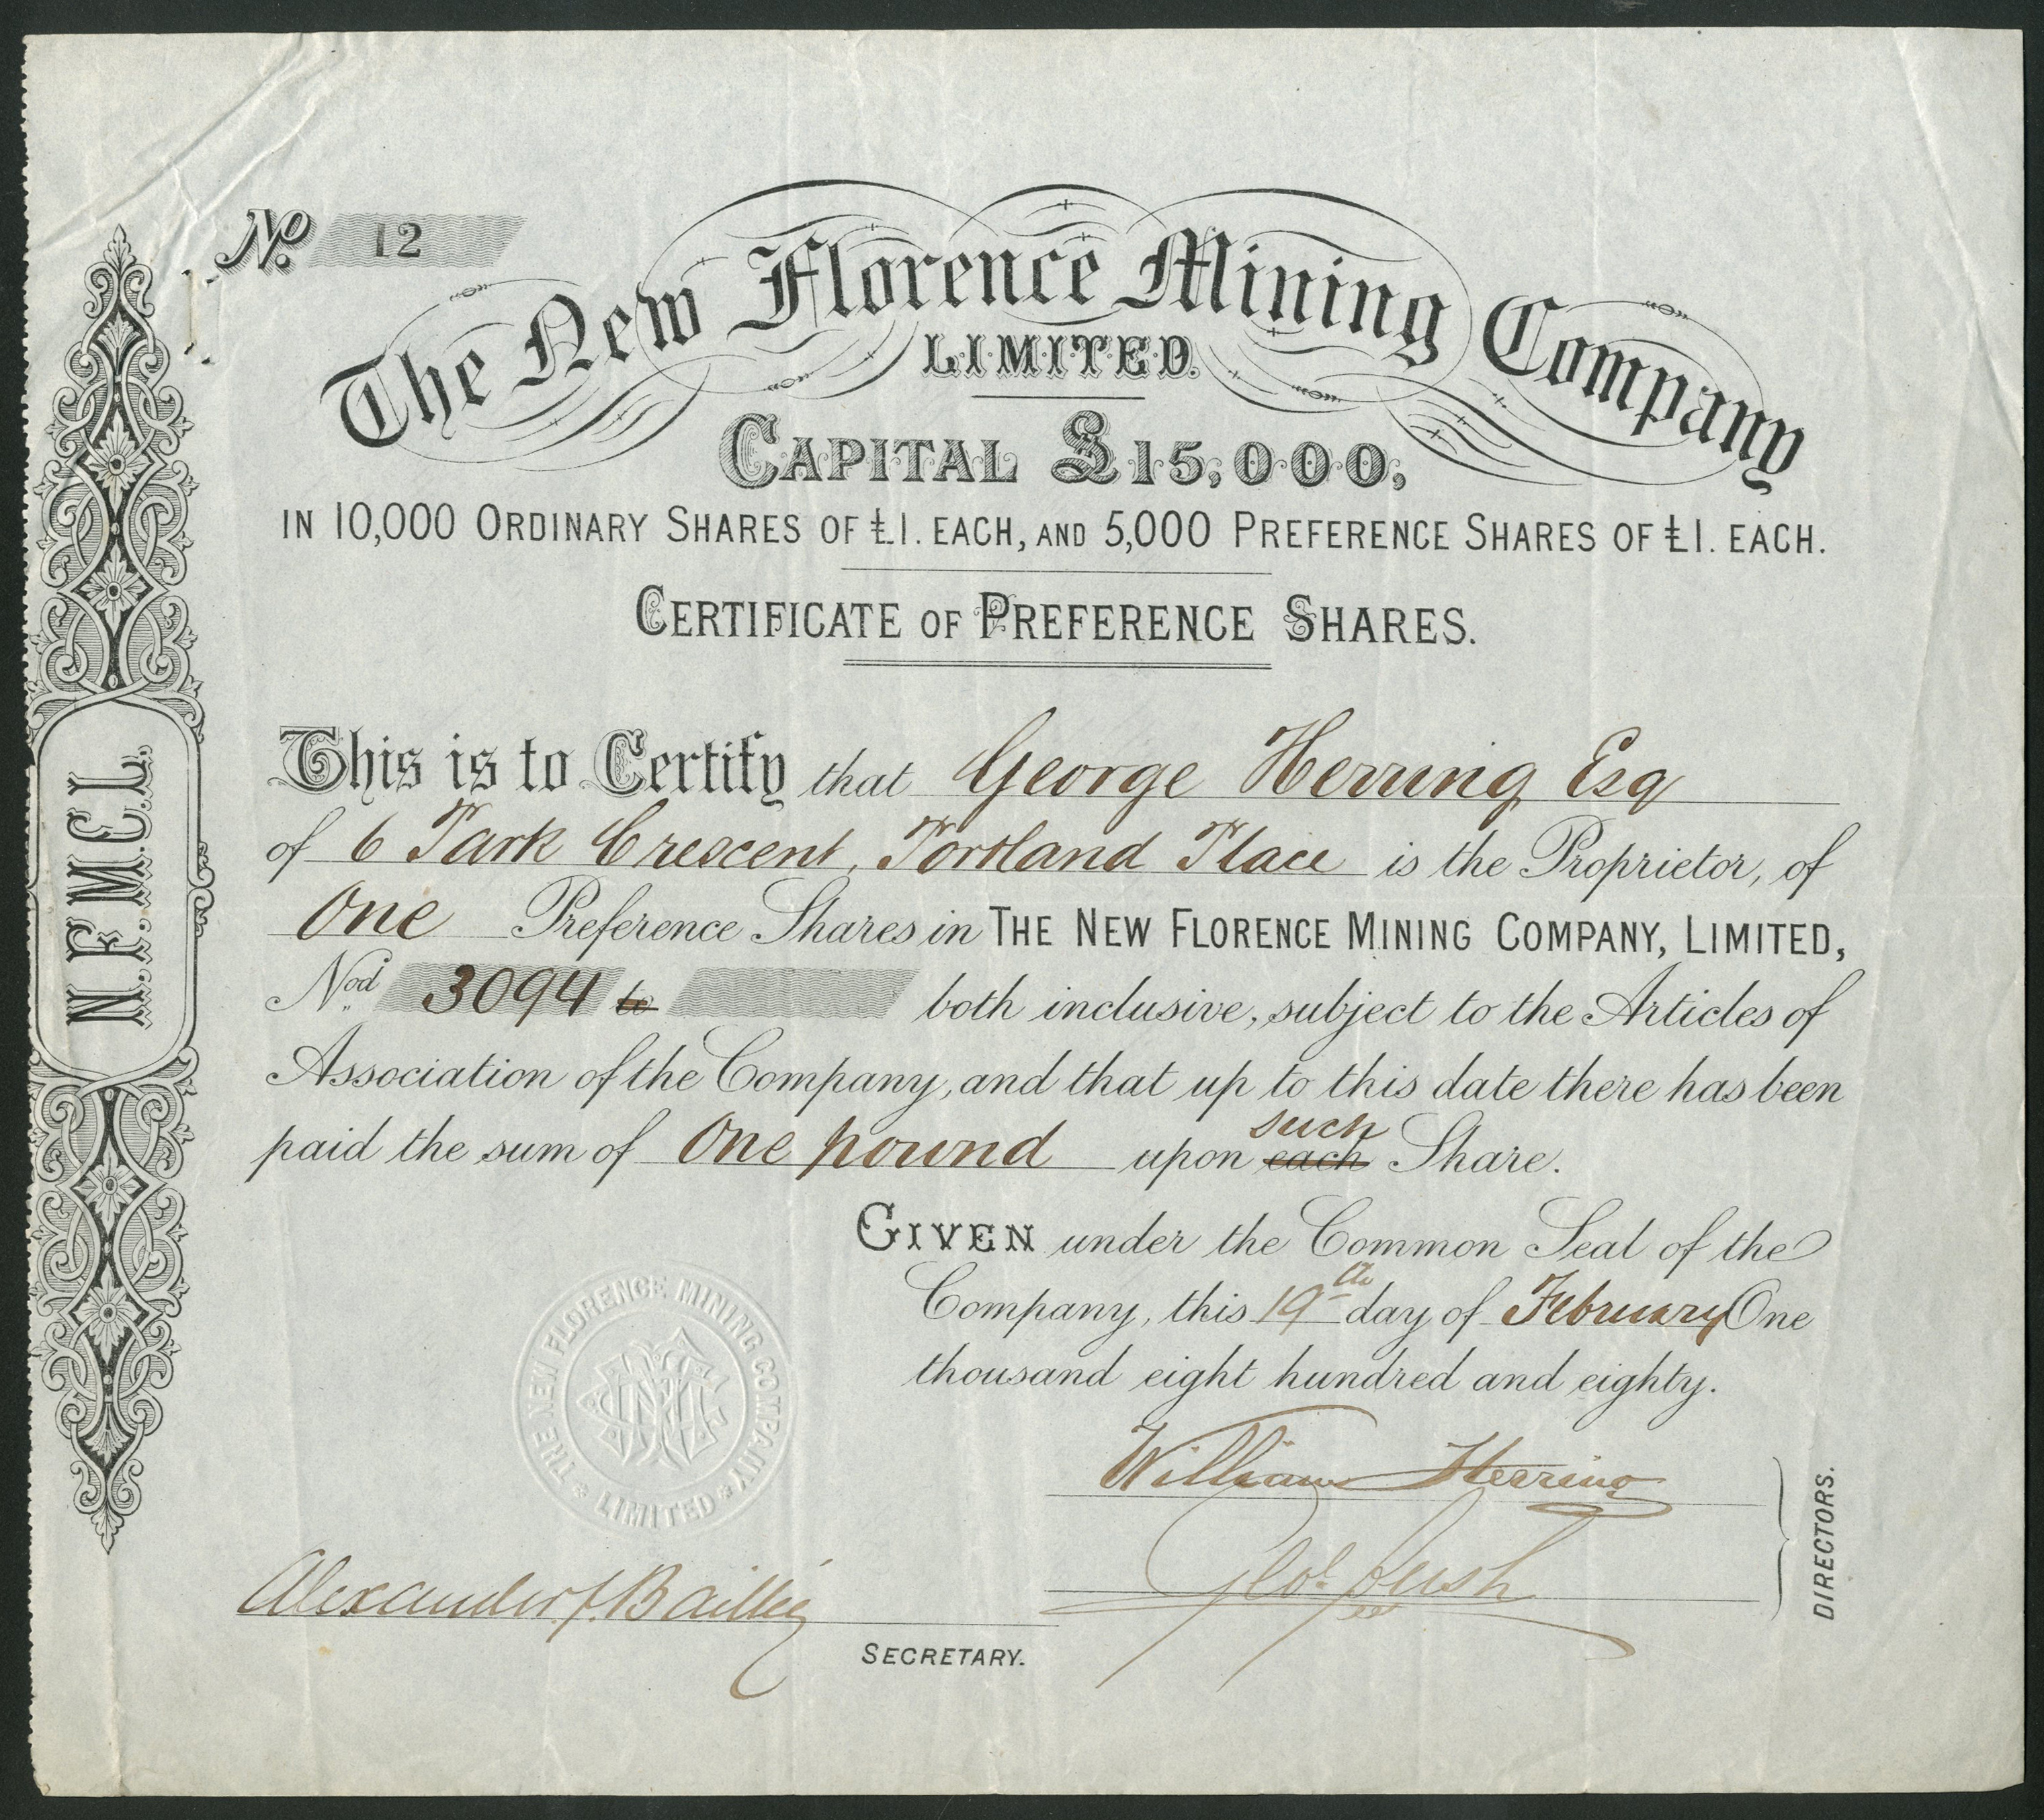 No. 12
The New Florence Mining Company
LIMITED.
CAPITAL £15,000,
IN 10,000 ORDINARY SHARES OF £1. EACH, AND 5,000 PREFERENCE SHARES OF £1. EACH.
CERTIFICATE OF PREFERENCE SHARES.
N.F.M.C.L.
This is to Certify that George Herring Esq
of 6 Park Crescent, Portland Place is the Proprietor, of
One Preference Shares in THE NEW FLORENCE MINING COMPANY, LIMITED,
Nod 3094 to both inclusive, subject to the Articles of
Association of the Company, and that up to this date there has been
such
paid the sum of One pound upon each Share.
GIVEN under the Common Seal of the
Company, this 19th day of February One
thousand eight hundred and eighty.
THE NEW FLORENCE MINING COMPANY
* LIMITED *
William Herring
Alexander J. Baillie
DIRECTORS.
SECRETARY.